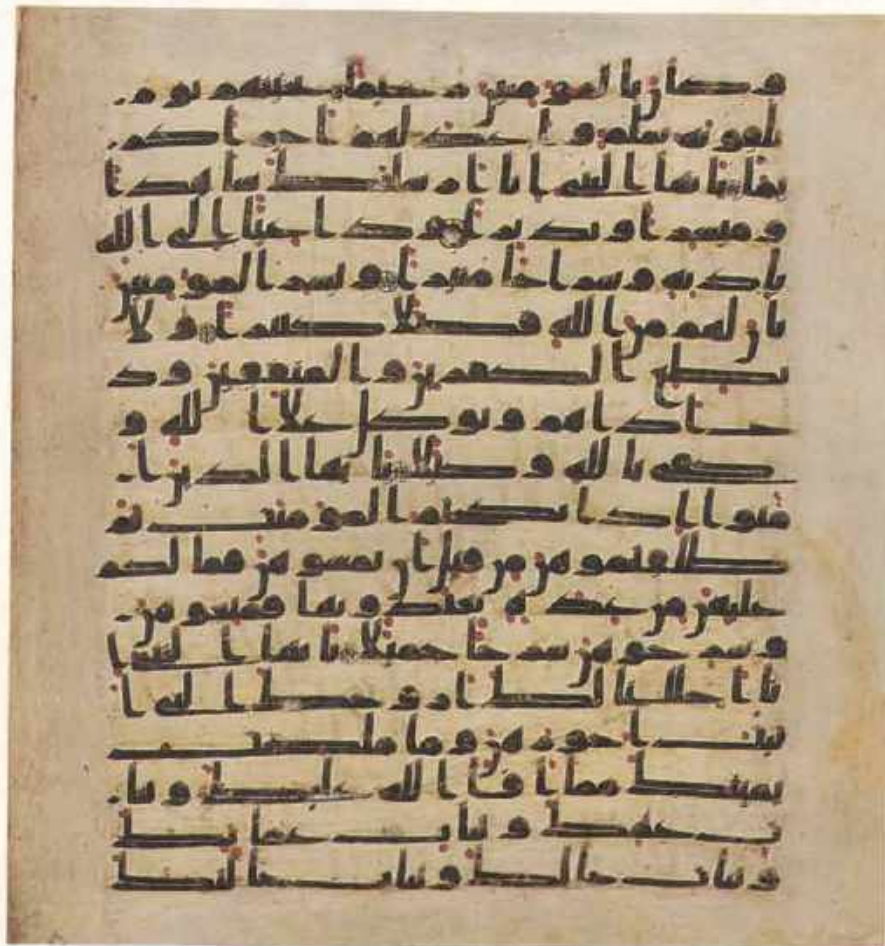 وكان بالمومنين رحيما تحيتهم يوم
يلقونه سلم واعد لهم اجرا كر
يما يايها النبي انا ارسلنك شهدا
ومبشرا ونذيرا وداعيا الى الله
باذنه وسراجا منيرا وبشر المومنين
بان لهم من الله فضلا كبيرا ولا
تطع الكفرين والمنفقين ود
ع اذاهم وتوكل علا الله و
كفى بالله وكيلا يايها الذين ا
منوا اذا نكحتم المومنت ثم
طلقتموهن من قبل ان تمسوهن فما لكم
عليهن من عدة تعتدونها فمتعوهن
وسرحوهن سرحا جميلا يايها النبي ا
نا احللنا لك ازوجك التي ا
تيت اجورهن وما ملكت
يمينك مما افا الله عليك وبنا
ت عمك وبنات عماتك
وبنات خالك وبنات خالتك